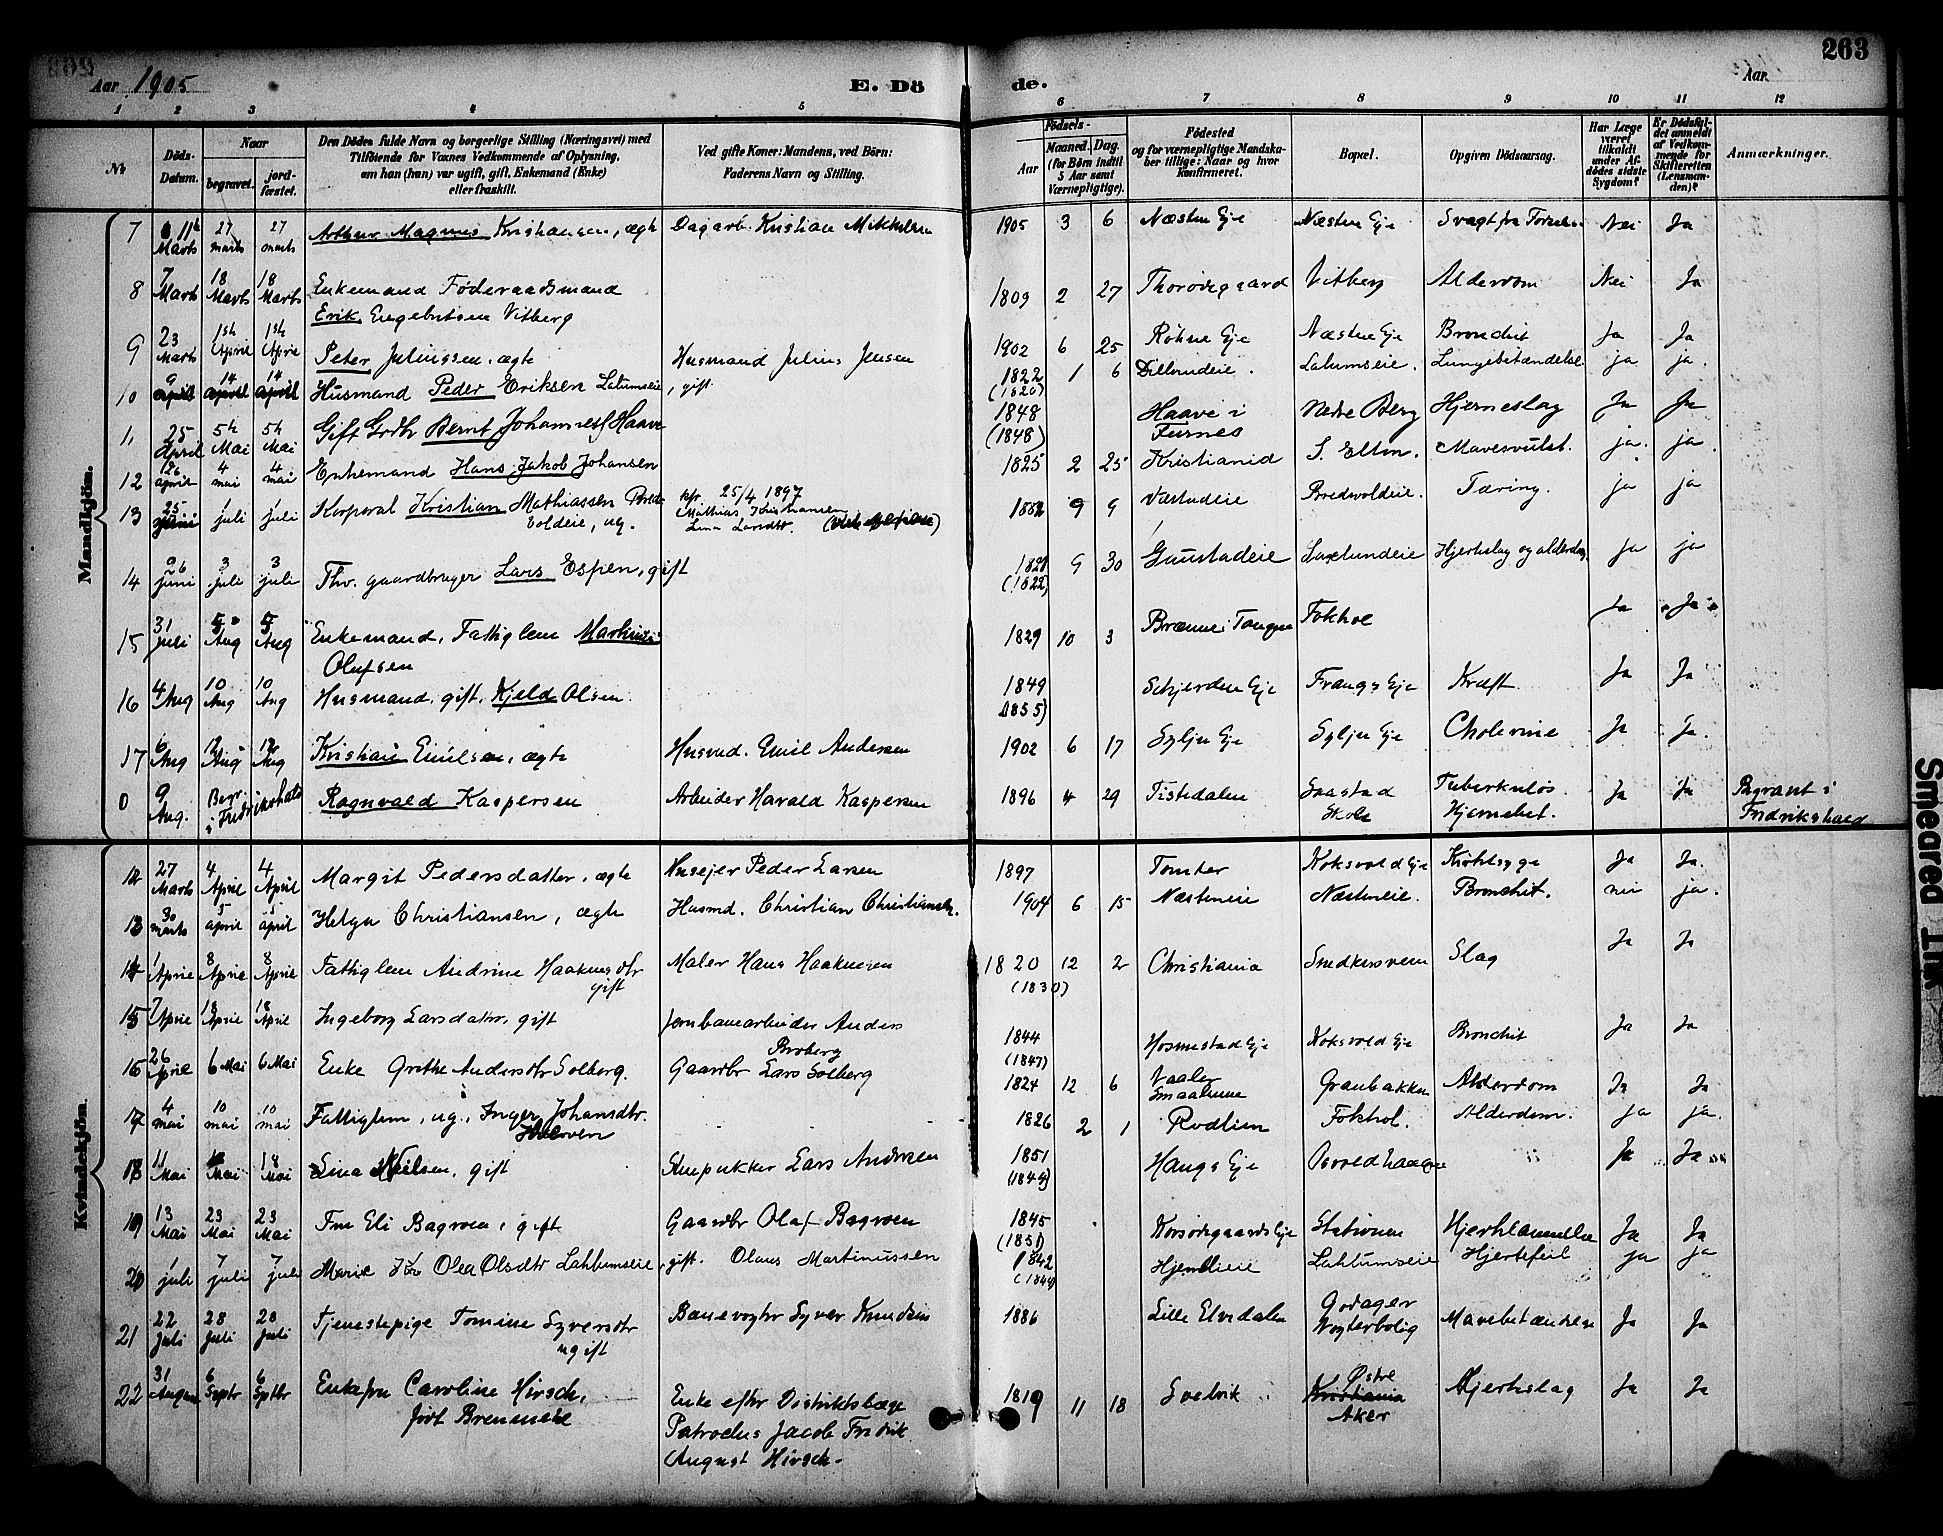 263
Aar 1905
E. Döde.
Aar
1 2 3 4 5 6 7 8 9 10 11 12
Nr.
Döds-Datum.
Naar
begravet.
jordfæstet.
Den Dødes fulde Navn og borgerlige Stilling (Næringsvei) med
Tilföiende for Voxnes Vedkommende af Oplysning,
om han (hun) var ugift, gift, Enkemand (Enke)
eller fraskilt.
Ved gifte Koner: Mandens, ved Börn:
Faderens Navn og Stilling.
Födsels-
Aar
Maaned. Dag.
(for Börn indtil
5 Aar samt
Værnepligtige).
Födested
og for værnepligtige Mandskaber tillige: Naar og hvor
konfirmeret.
Bopæl.
Opgiven Dödsaarsag.
Har Læge
været
tilkaldt
under Afdödes sidste
Sygdom?
Er Dödsfaldet anmeldt
af Vedkommende for
Skifteretten
(Lensmanden)?
Anmærkninger.
Mandkjön.
7 11te Marts 27 marts 27 marts Arthur Magnus Kristiansen, ægte Dagarb. Kristian Mikkelsen 1905 3 6 Næsten Eje Næsten Eje Svagt fra Nei Ja
8 7 Marts 18 Marts 18 Marts Enkemand Föderaadsmand 1809 2 27 Thorødegaard Vitberg Alderdom Nei Ja
Erik Engebretsen Vitberg
9 23 Marts 1ste April 1ste April Peter Juliussen, ægte Husmand Julius Jensen 1902 6 25 Røhne Eje Næsten Eje Bronchit Ja Ja
10 9 april 14 april 14 april Husmand Peder Eriksen Lalumseie, gift 1822 (1820) 1 6 Dillerudeie. Lalumseie. Lungebetændelse ja ja.
11 25 April 5te Mai 5te Mai Gift Grdbr Bernt Johannes Haave 1848 (1848) Haave i Furnes Nedre Berg Hjerneslag Ja Ja
12 26 april 4 mai 4 mai Enkemand Hans Jakob Johansen 1825 2 25 Kristianid S. Elton. Mavesvulst. ja. ja.
13 25 juni 1 juli 1 juli Korporal Kristian Mathiassen Bredvoldeie, ug. kfr. 25/4 1897 Mathias Kristiansen Lina Larsdtr. 1882 9 9 Vestudeie Bredvoldeie. Tæring. ja ja
14 26 juni 3 juli 3 juli Fhv. gaardbruger Lars Espen, gift 1821 (1822) 9 30 Gaustadeie Saxlundeie Hjerteslag og alderdom Ja ja
15 31 juli 5 Aug 5 Aug Enkemand, Fattiglem Martinus 1829 10 3 Brænne i Tangen Fokhol Ja Ja
Olufsen
16 4 Aug 10 Aug 10 Aug Husmand, gift, Kjeld Olsen 1849 (1855) Schjerden Eje Frangs Eje Kræft Ja Ja
17 6 Aug 12 Aug 12 Aug Kristian Emilsen, ægte Husmd. Emil Andersen 1902 6 17 Sylju Eje Sylju Eje Cholerine Ja Ja.
0 9 Aug. Begr. i Fredrikshald Ragnvald Kaspersen Arbeider Harald Kaspersen 1896 4 29 Tistedalen Saastad Skole Tuberkuløs Hjernebet. Ja Ja Begravet i Fredrikshald
Kvindekjön.
12 27 Marts 4 April 4 April Margit Pedersdatter, ægte Husejer Peder Larsen 1897 Tomter Koksvold Eje Ja Ja.
13 30 marts 5 april 5 april Helga Christiansen, ægte Husmd. Christian Christiansen. 1904 6 15 Næsteneie Næsteneie. Bronchit. nei ja.
14 1 April 8 April 8 April Fattiglem Andrine Haakensdtr gift Maler Hans Haakensen 1820 (1830) 12 2 Christiania Snedkersveen Slag Ja Ja
15 7 April 18 April 18 April Ingeborg Larsdatter, gift Jernbanearbeider Anders Broberg 1844 (1847) Hosmestad Eje Koksvold Eje Bronchit Ja Ja
16 26 April 6 Mai 6 Mai Enke Grethe Andersdtr Solberg. Gaardbr Lars Solberg 1824 12 6 Vaaler Smaalenene Granbakken Alderdom Ja Ja
17 4 mai 10 mai 10 mai Fattiglem, ug., Inger Johansdtr. 1826 2 1 Rudlien Fokhol. Alderdom. ja ja.
18 11 Mai Mai 18 Mai Lina Nilsen, gift Stenpukker Lars Andersen 1851 (1844) Haugs Eje Ja Ja
19 13 Mai 23 Mai 23 Mai Fru Eli Bagroen, gift Gaardbr Olaf Bagroen 1845 (1851) Korsødegaards Eje Stationen Hjertelammelse Ja Ja
20 1 juli 7 juli 7 juli Marie Olea Olsdtr Lahlumseie, gift. Olaus Martinussen 1842 (1844) Hjemlieie Lahlumseie Hjertefeil ja ja
21 22 Juli 28 Juli 28 Juli Tjenestepige Tomine Syversdtr ugift Banevogter Syver Knudsen 1886 Lille Elvedalen Godager Vogterbolig Mavebetændelse Ja Ja
22 31 August 6 Septbr 6 Septbr Enkefru Caroline Hirsch, født Enke efter Distriktslæge 1819 11 18 Svelvik Østre Aker Hjerteslag Ja Ja
Patroclus Jacob Fredrik
August Hirsch.
Smeared Ink